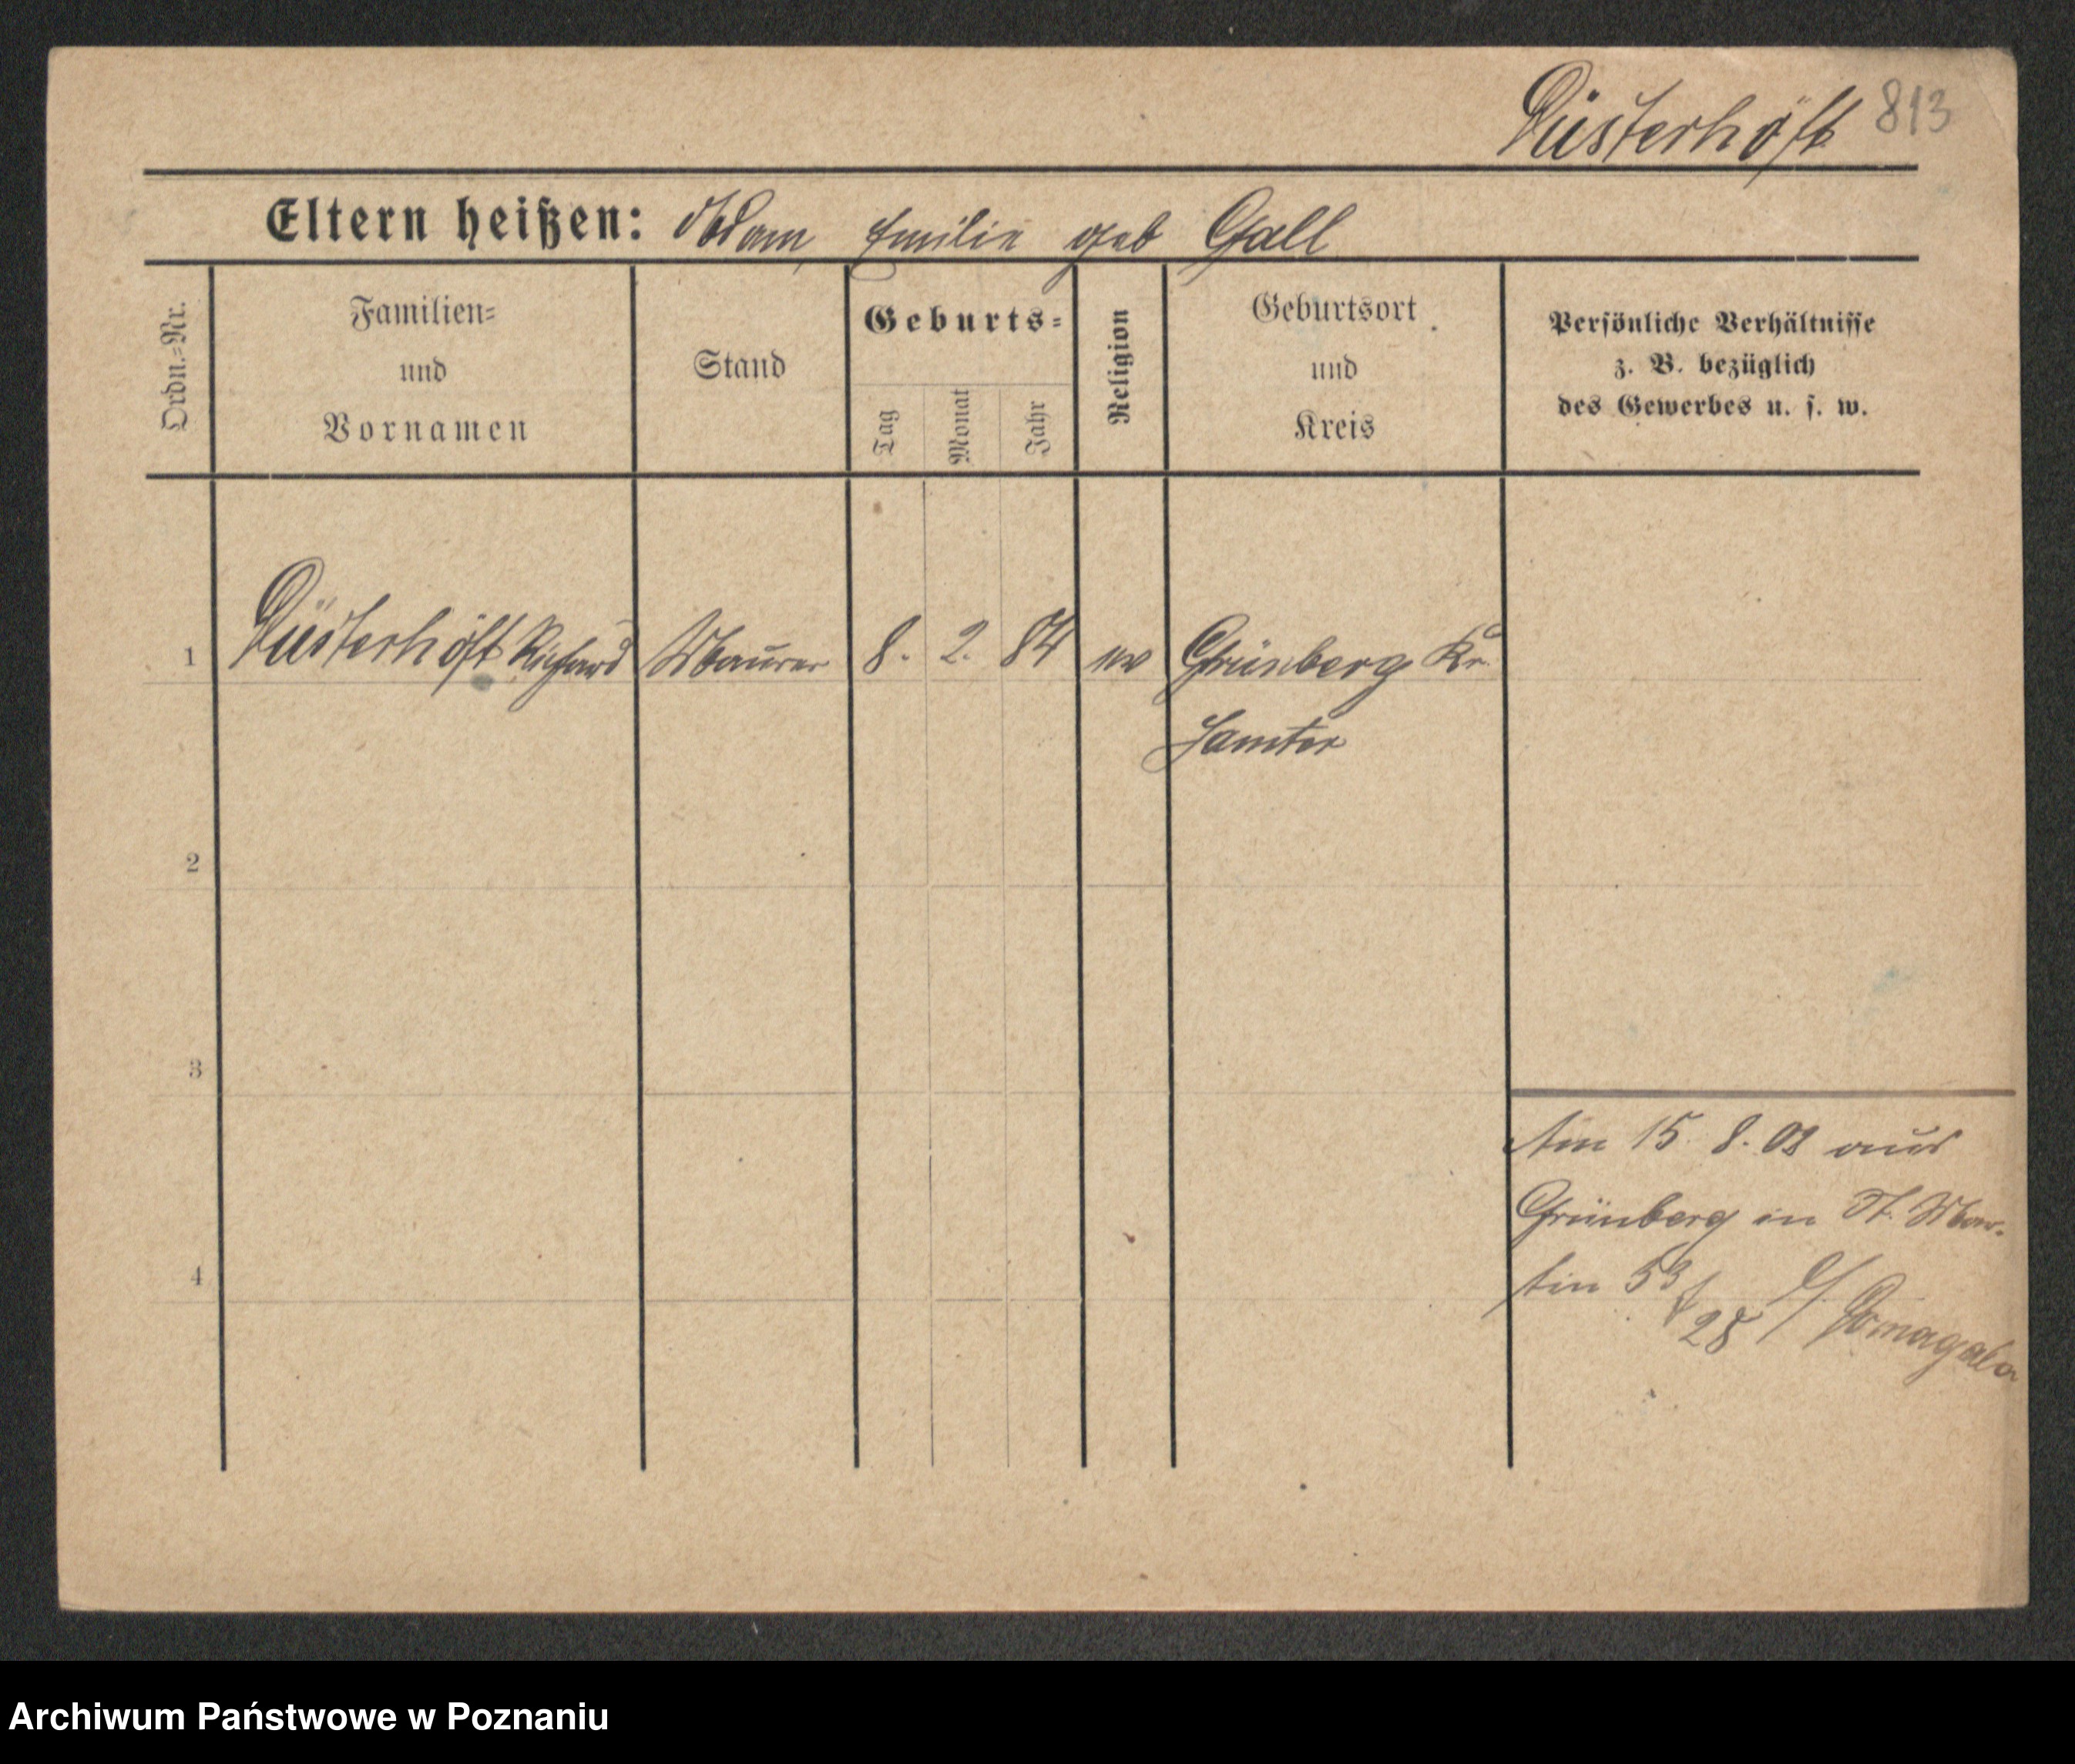 Düsterhöft 813
Eltern heißen: Adam, Emilie geb Gall
Ordn.=Nr.
Familien=
und
Vornamen
Stand
Geburts=
Tag
Monat
Jahr
Religion
Geburtsort
und
Kreis
Persönliche Verhältnisse
z. B. bezüglich
des Gewerbes u. s. w.
1 Düsterhöft Richard Maurer 8. 2. 84 ev Grünberg Kr.
Samter
2
3
Am 15. 8. 08 aus
Grünberg in St. Mar-
tin 53
4
28 Domagala
Archiwum Państwowe w Poznaniu